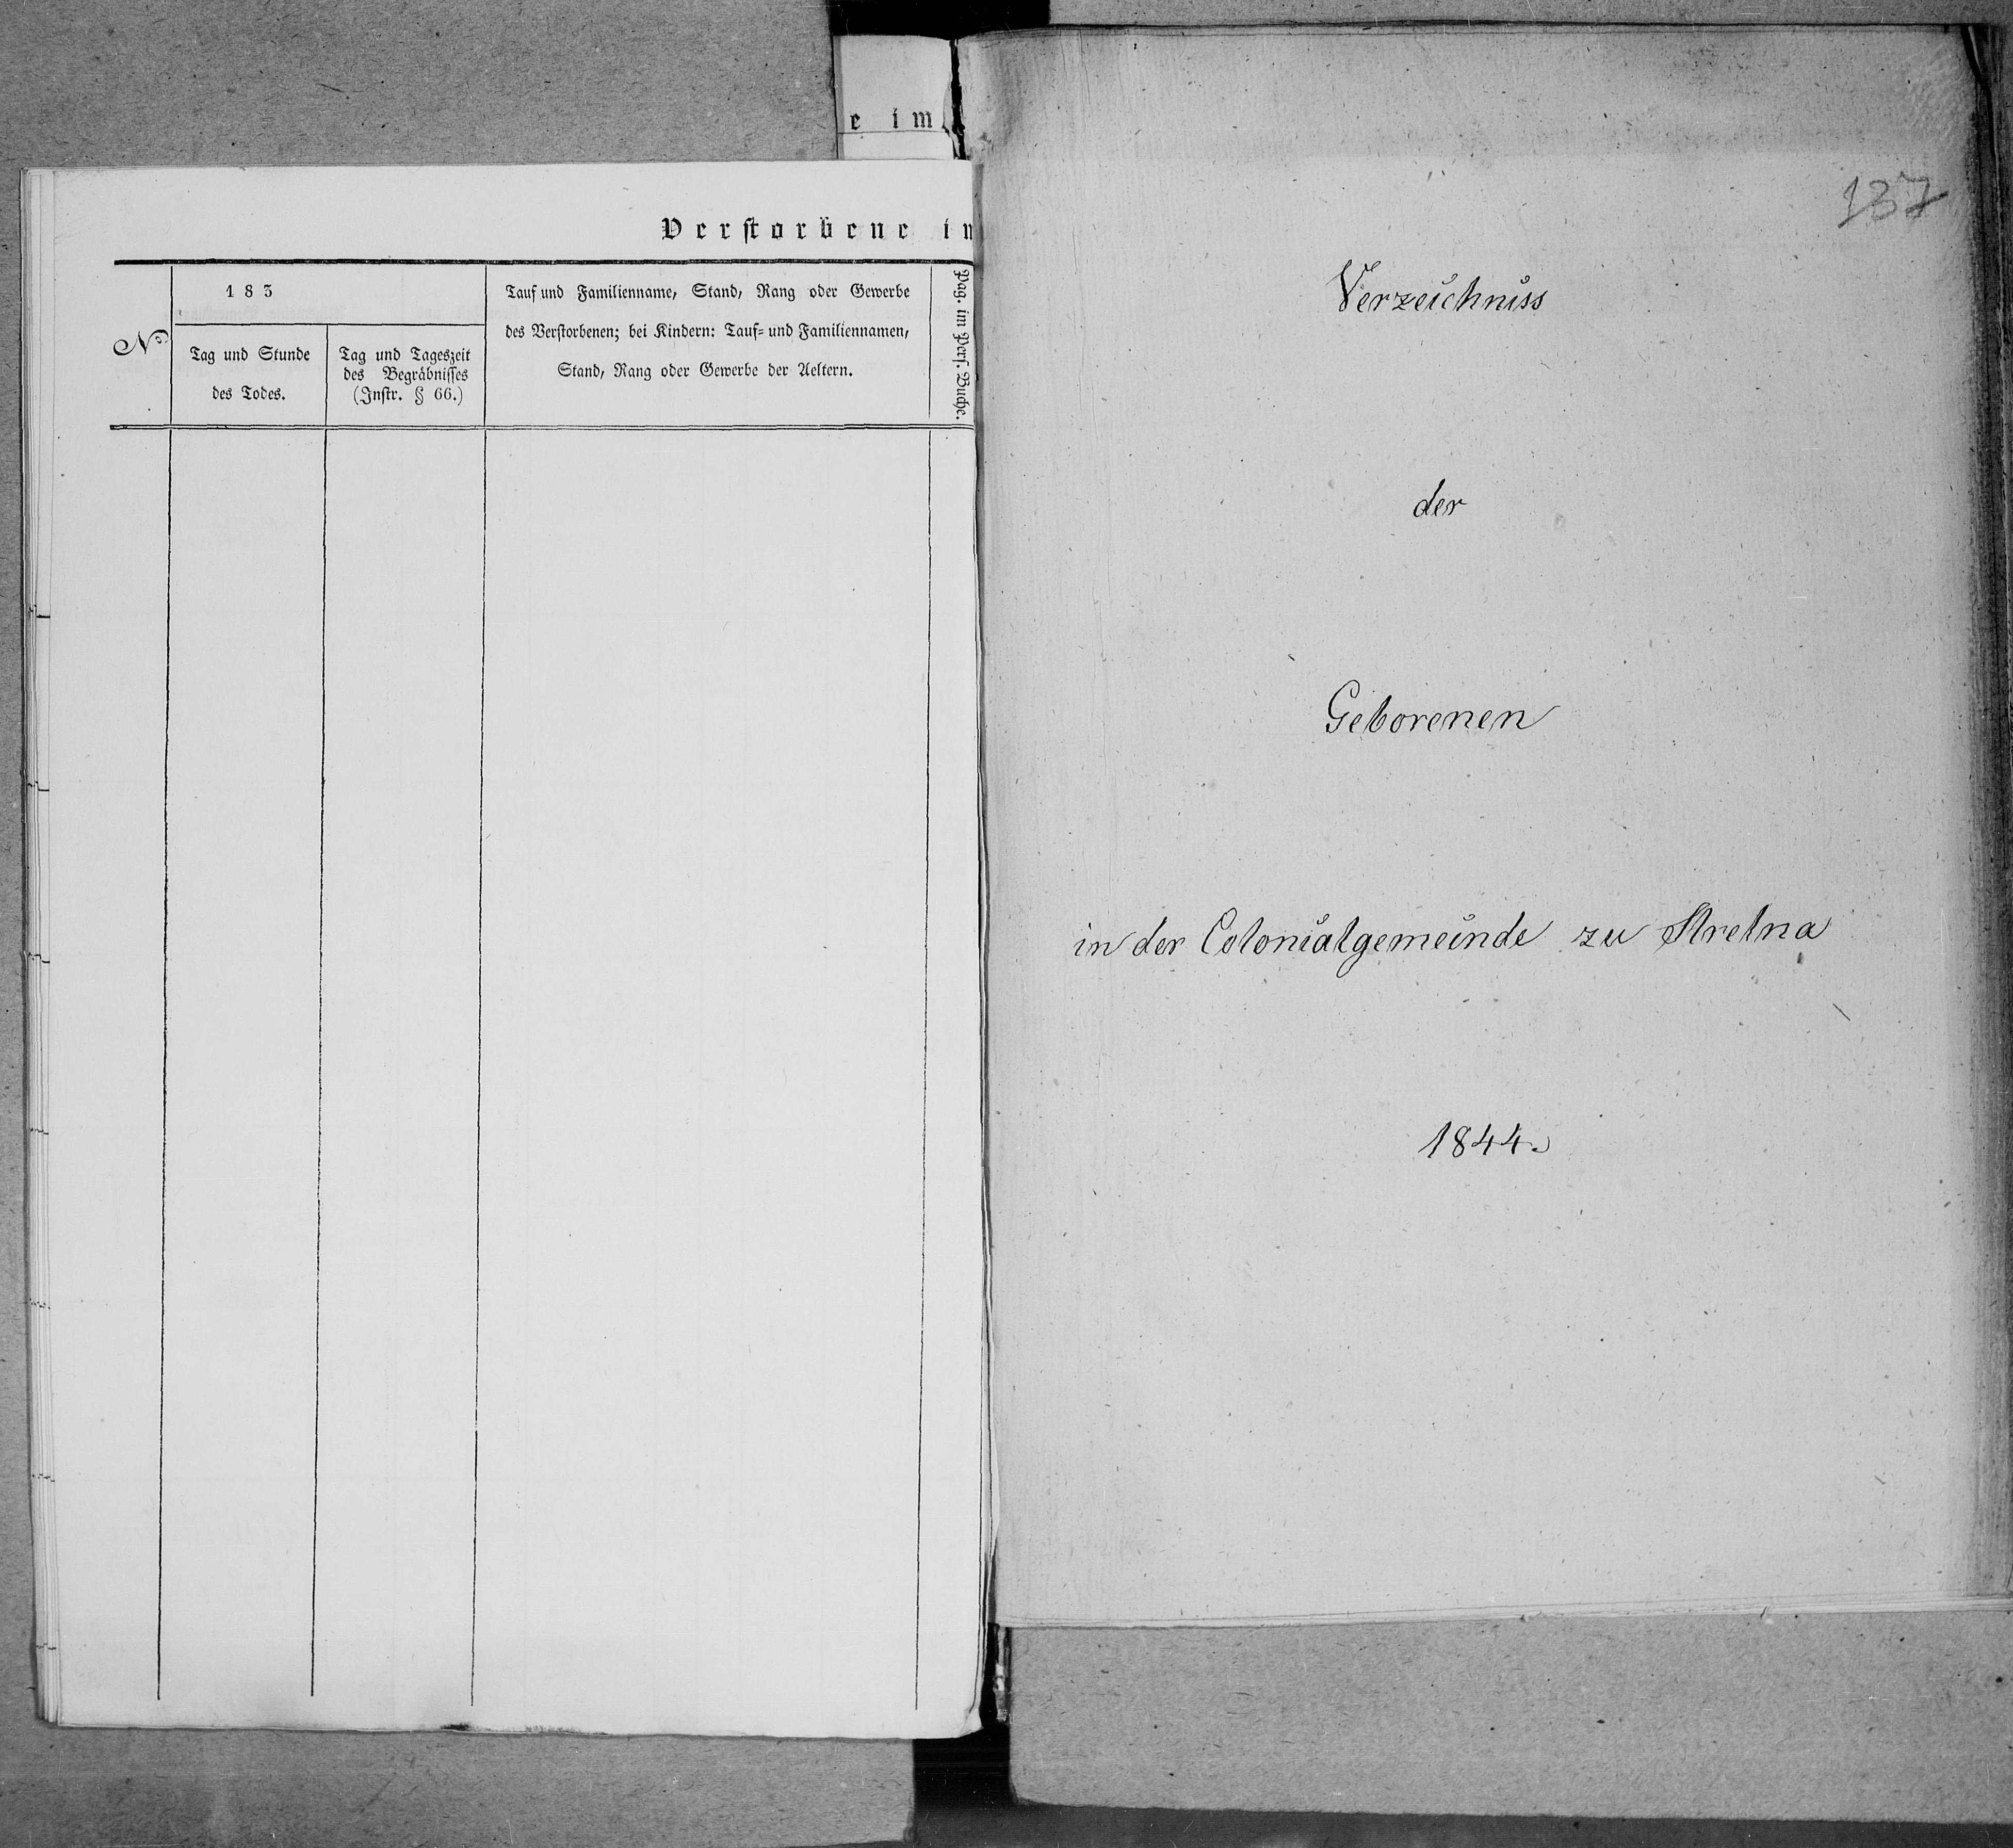 e im
Verstorbene in
No
183
Tag und Stunde
des Todes.
Tag und Tageszeit
des Begräbnisses
(Instr. § 66.)
Tauf und Familienname, Stand, Rang oder Gewerbe
des Verstorbenen; bei Kindern: Tauf= und Familiennamen,
Stand, Rang oder Gewerbe der Aeltern.
Pag. im Pers. Buche.
137
Verzeichniss
der
Geborenen
in der Colonialgemeinde zu Strelna
1844.